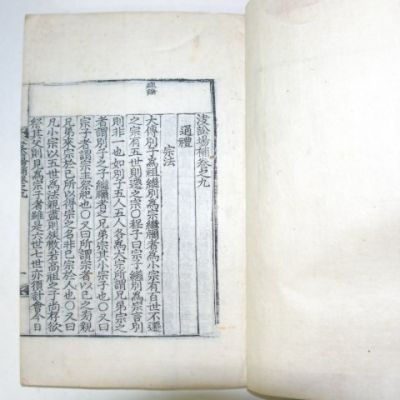 疏論
決訟場補卷之九
通禮
宗法
大傳別子為祖繼別為宗繼禰者為小宗有百世不遷
之宗有五世則遷之宗〇程子曰宗子繼別為宗言別
則非一也如別子五人五人各為大宗所謂兄弟宗之
者謂別子之子繼禰者之兄弟宗其小宗子也〇又曰
宗子者謂宗主祭祀也〇又曰所謂宗者以己之旁親
兄弟來宗於己所以得宗之名非己宗於人也〇又曰
凡小宗以五世為法親盡則族散若高祖之子尚存欲
祭其父則見為宗子者雖是六世七世亦須計會今日